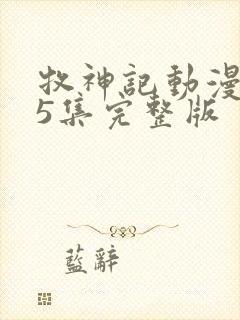 牧神記動漫
5集完整版
藍辭